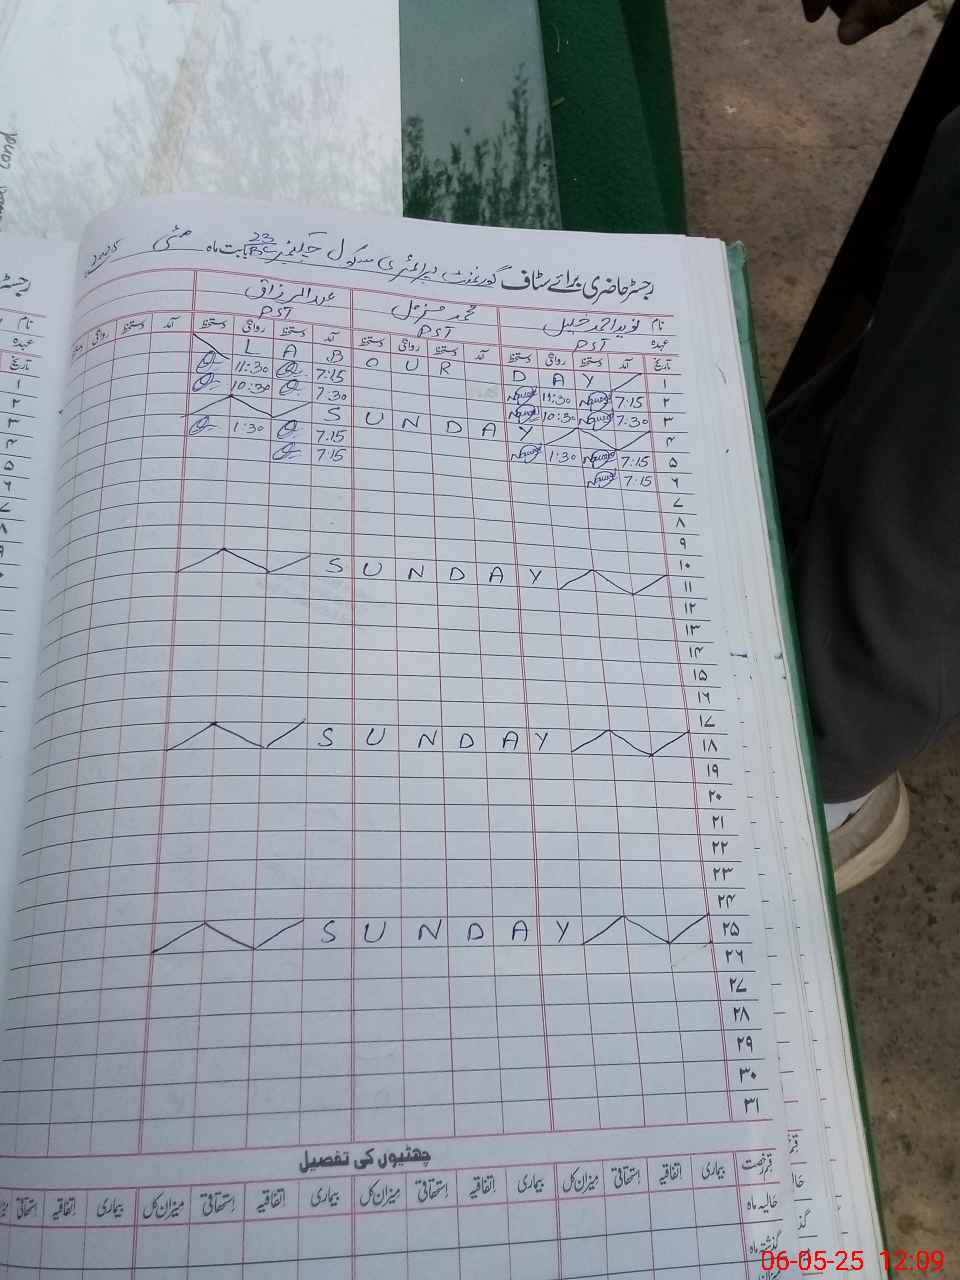 رجسٹر حاضری برائے سٹاف گورنمنٹ پرائمری سکول بابت ماہ مئی 2025
نام نوید احمد خلیل محمد مزمل عبدالرزاق
عہدہ PST PST PST
تاریخ آمد دستخط روانگی دستخط آمد دستخط روانگی دستخط آمد دستخط روانگی دستخط آمد دستخط روانگی
۱ L A B O U R D A Y
۲ 7:15 11:30 7:15 11:30
۳ 7:30 10:30 7:30 10:30
۴ S U N D A Y
۵ 7:15 1:30 7:15 1:30
۶ 7:15 7:15
۷
۸
۹
۱۰
۱۱ S U N D A Y
۱۲
۱۳
۱۴
۱۵
۱۶
۱۷
۱۸ S U N D A Y
۱۹
۲۰
۲۱
۲۲
۲۳
۲۴
۲۵ S U N D A Y
۲۶
۲۷
۲۸
۲۹
۳۰
۳۱
چھٹیوں کی تفصیل
قسم رخصت بیماری اتفاقیہ استحقاقی میزان کل بیماری اتفاقیہ استحقاقی میزان کل بیماری اتفاقیہ استحقاقی میزان کل بیماری اتفاقیہ استحقاقی
حالیہ ماہ
گذشتہ ماہ
06-05-25 12:09